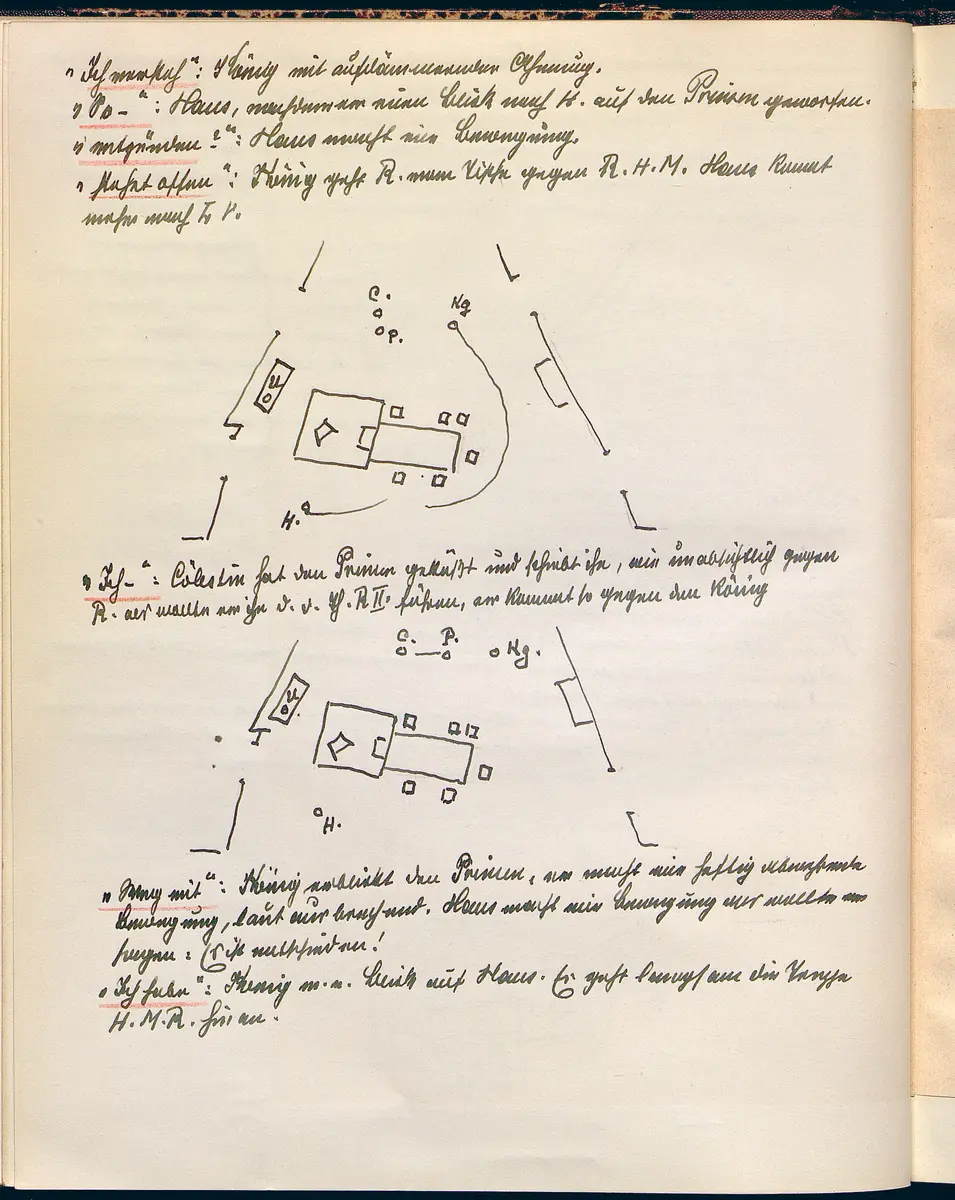 "Ich versteh": König mit aufdämmernder Ahnung.
"So –": Hans, nachdem er einen Blick nach H. auf den Prinzen geworfen.
"entzünden?": Hans macht eine Bewegung.
"steht offen": König geht R. vom Tische gegen R. H. M. Hans kommt
mehr nach L. V.
C.
Kg
P.
U
H.
"Ich –": Cölestin hat den Prinzen geküßt und schiebt ihn, wie unabsichtlich gegen
R. als wollte er ihn d. d. Th. R II. führen, er kommt so gegen den König
C. P.
Kg.
U
H.
"Weg mit": König erblickt den Prinzen, er macht eine heftig abwehrende
Bewegung, laut aufbrechend. Hans macht eine Bewegung als wollte er
sagen: Es ist entschieden!
"Ich habe": König m. e. Blick auf Hans. Er geht langsam die Treppe
H. M. R. hinan.